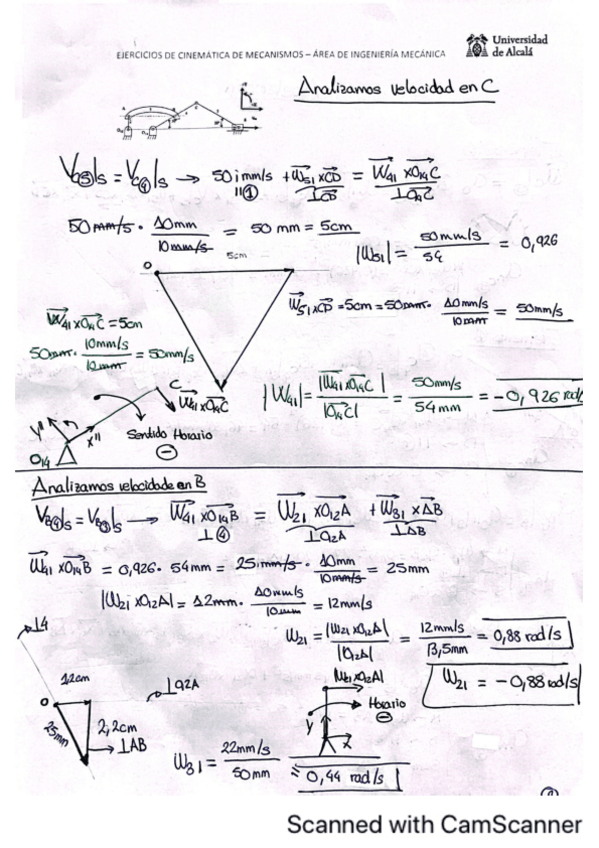 EJERCICIOS DE CINEMÁTICA DE MECANISMOS – ÁREA DE INGENIERÍA MECÁNICA
Universidad
de Alcalá
Analizamos velocidad en C
50 i mm/s + W51 x CD = W41 x O14C
// ① ⊥CD ⊥O14C
50 mm/s · 10mm / 10mm/s = 50 mm = 5cm
|W51| = 50mm/s / 54 = 0,926
O 5cm
W51 x CD = 5cm = 50mm · 10mm/s / 10mm = 50mm/s
W41 x O14C = 5cm
50mm · 10mm/s / 10mm = 50mm/s
|W41| = |W41 x O14C| / |O14C| = 50mm/s / 54mm = -0,926 rad/
C
W41 x O14C
y'' x''
O14
Sentido Horario
⊖
Analizamos velocidade en B
W41 x O14B = W21 x O12A + W31 x AB
⊥ ④ ⊥O2A ⊥AB
W41 x O14B = 0,926 · 54mm = 25 mm/s · 10mm / 10mm/s = 25mm
|W21 x O12A| = 12mm · 10mm/s / 10mm = 12mm/s
W21 = |W21 x O12A| / |O2A| = 12mm/s / 13,5mm = 0,88 rad/s
W21 = -0,88 rad/s
⊥4
12cm
O
⊥O2A
25mm
2,2cm
⊥AB
Horario
⊖
y
x
W31 = 22mm/s / 50mm = 0,44 rad/s
Scanned with CamScanner